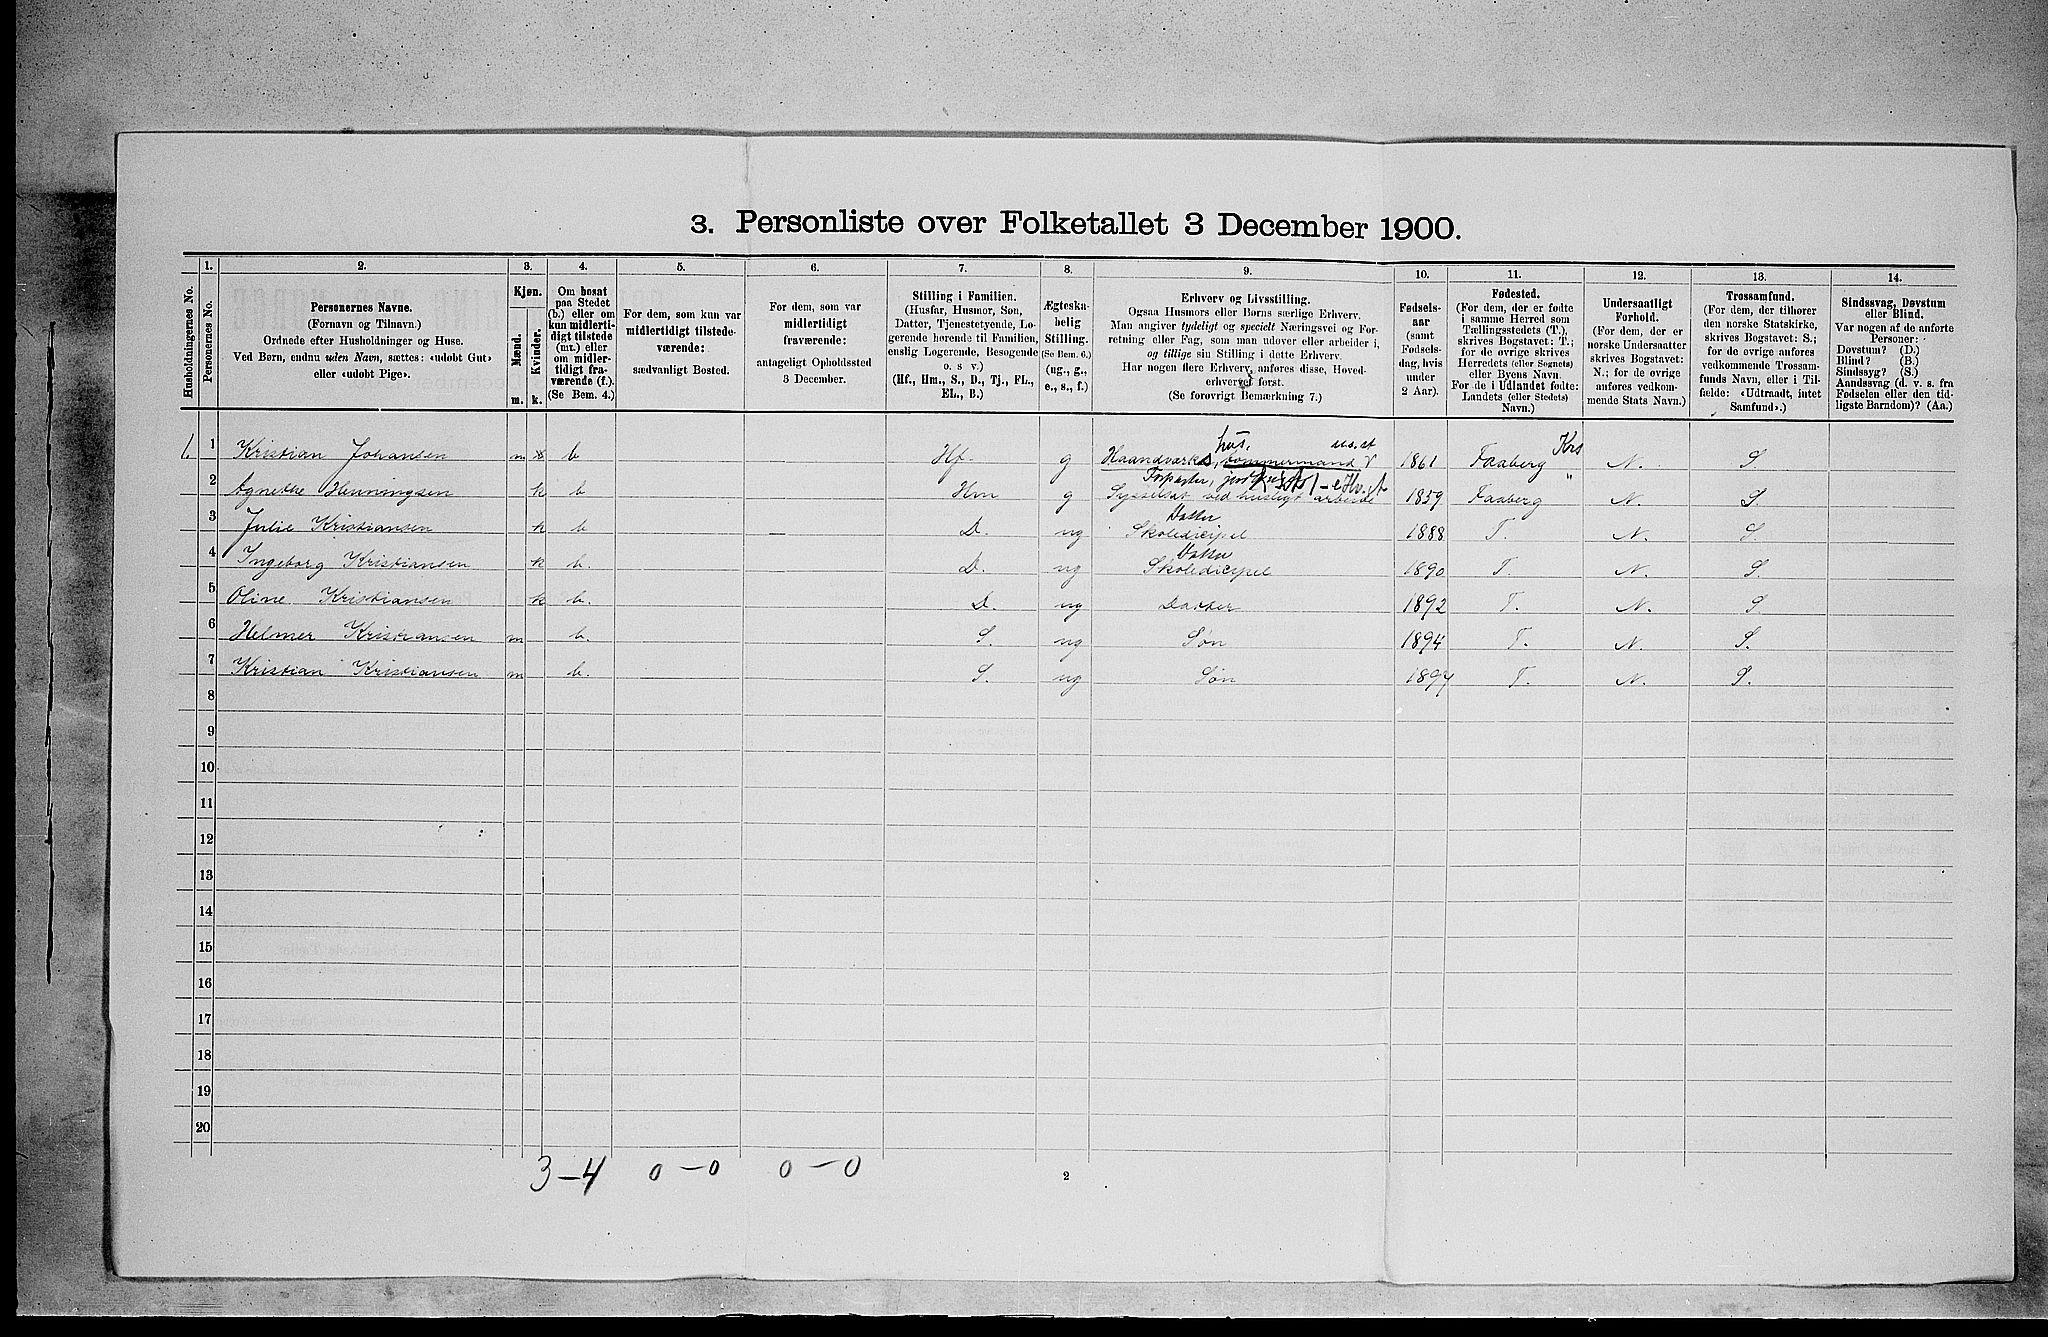 3. Personliste over Folketallet 3 December 1900.
Husholdningernes No.
1.
Personernes No.
2.
Personernes Navne.
(Fornavn og Tilnavn.)
Ordnede efter Husholdninger og Huse.
Ved Børn, endnu uden Navn, sættes: «udobt Gut»
eller «udobt Pige».
3.
Kjøn.
Mænd.
Kvinder.
m.
k.
4.
Om bosat
paa Stedet
(b.) eller om
kun midlerti-
digt tilstede
(mt.) eller
om midler-
tidigt fra-
værende (f.).
(Se Bem. 4.)
5.
For dem, som kun var
midlertidigt tilstede-
værende:
sædvanligt Bosted.
6.
For dem, som var
midlertidigt
fraværende:
antageligt Opholdssted
3 December.
7.
Stilling i Familien.
(Husfar, Husmor, Søn,
Datter, Tjenestetyende, Lo-
gerende hørende til Familien,
enslig Logerende, Besøgende
o. s v.)
(Hf., Hm., S., D., Tj., FL.,
EL., B.)
8.
Ægteska-
belig
Stilling.
(Se Bem. 6.)
(ug., g.,
e., s., f.)
9.
Erhverv og Livsstilling.
Ogsaa Husmors eller Børns særlige Erhverv.
Man angiver tydeligt og specielt Næringsvei og For-
retning eller Fag, som man udøver eller arbeider i,
og tillige sin Stilling i dette Erhverv.
Har nogen flere Erhverv, anføres disse, Hoved-
erhvervet først.
(Se forøvrigt Bemærkning 7.)
10.
Fødsels-
aar
(samt
Fødsels-
dag, hvis
under
2 Aar).
11.
Fødested.
(For dem, der er fødte
i samme Herred som
Tællingsstedets (T.),
skrives Bogstavet: T.;
for de øvrige skrives
Herredets (eller Sognets)
eller Byens Navn.
For de i Udlandet fødte:
Landets (eller Stedets)
Navn.)
12.
Undersaatligt
Forhold.
(For dem, der er
norske Undersaatter
skrives Bogstavet:
N.; for de øvrige
anføres vedkom-
mende Stats Navn.)
13.
Trossamfund.
(For dem, der tilhører
den norske Statskirke,
skrives Bogstavet: S.;
for de øvrige anføres
vedkommende Trossam-
funds Navn, eller i Til-
fælde: «Udtraadt, intet
Samfund».)
14.
Sindssvag, Døvstum
eller Blind.
Var nogen af de anførte
Personer:
Døvstum? (D.)
Blind? (B.)
Sindssyg? (S.)
Aandssvag (d. v. s. fra
Fødselen eller den tid-
ligste Barndom)? (Aa.)
1. 1 Kristian Johansen m b Hf g Haandværks, tømmermand 1861 Faaberg N. S
2 Agnethe Henningsen k b Hm g Sysselsat ved husligt arbeide 1859 Faaberg N. S.
Datter
3 Julie Kristiansen k b D. ug Skoledicipel 1888 T. N. S
Datter
4 Ingeborg Kristiansen k b. D. ug Skoledicipel 1890 T. N. S.
5 Oline Kristiansen k b. D. ug Datter 1892 T. N. S
6 Helmer Kristiansen m b. S. ug Søn 1894 T. N. S.
7 Kristian Kristiansen m b. S. ug Søn 1897 T. N. S.
8
9
10
11
12
13
14
15
16
17
18
19
20
3-4 0-0 0-0
2